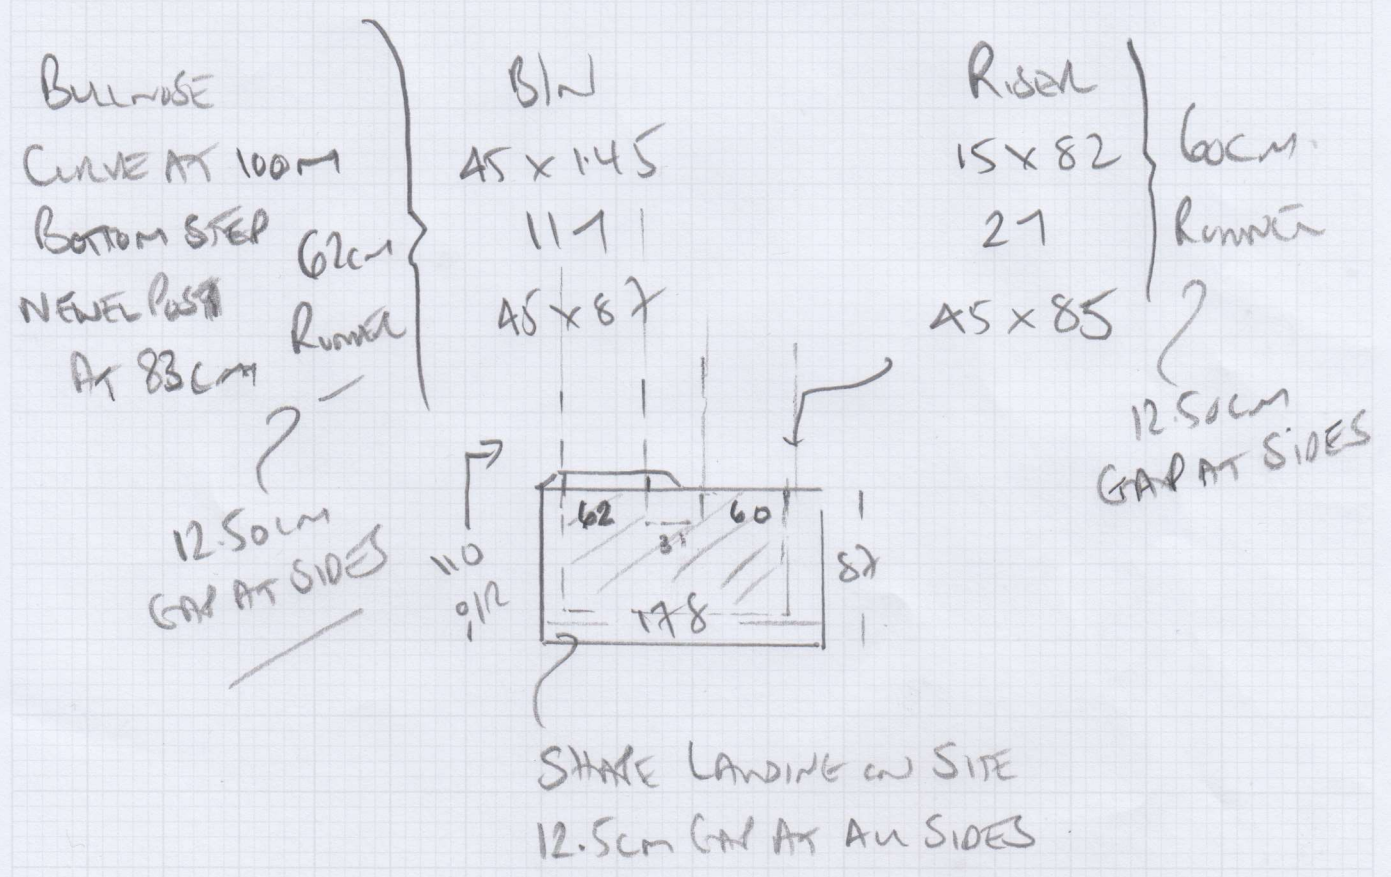 BULLNOSE
CURVE AT 100M
BOTTOM STEP
NEWEL POST
AT 83CM
62CM
RUNNER
12.50CM
GAP AT SIDES
B/N
45 x 1.45
111
45 x 87
RISER
15 x 82
21
45 x 85
60CM.
RUNNER
12.50CM
GAP AT SIDES
110
62
60
87
178
SHAPE LANDING ON SITE
12.5CM GAP AT ALL SIDES